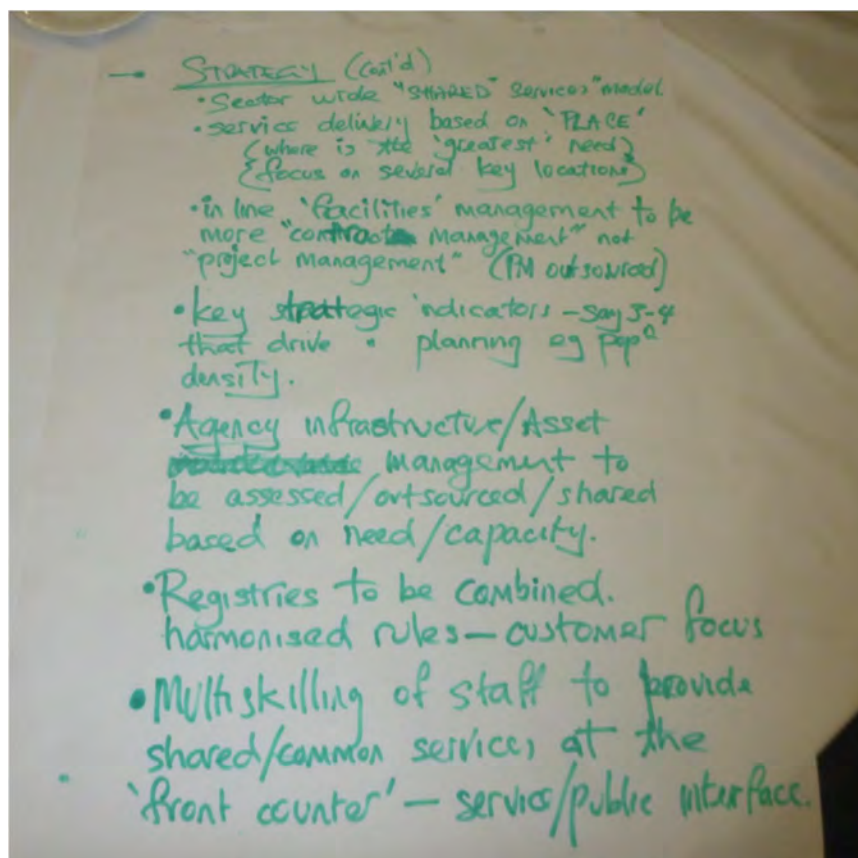 → STRATEGY (Cont'd)
• Sector wide "SHARED" services "model.
• service delivery based on 'PLACE'
(where is the 'greatest' need)
{focus on several key locations}
• in line 'facilities' management to be
more "contract management" not
"project management" (PM outsourced)
• key strategic indicators – say 3-4
that drive • planning eg popn
density.
• Agency infrastructure/Asset
management to
be assessed/outsourced/shared
based on need/capacity.
• Registries to be combined.
harmonised rules – customer focus
• Multiskilling of staff to provide
shared/common services at the
'front counter' – service/public interface.